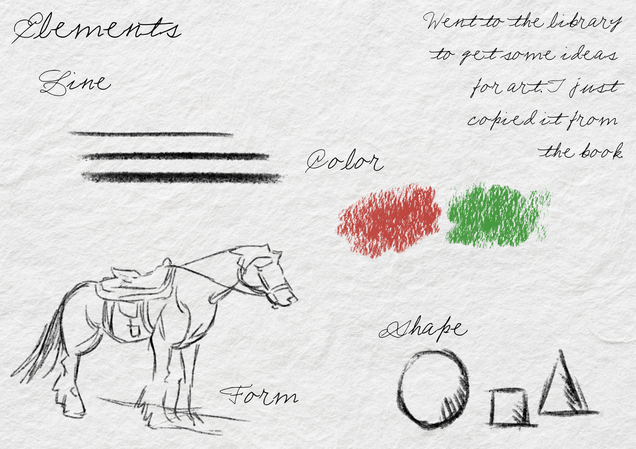 Elements
Went to the library
to get some ideas
for art. I just
copied it from
the book
Line
Color
Shape
Form